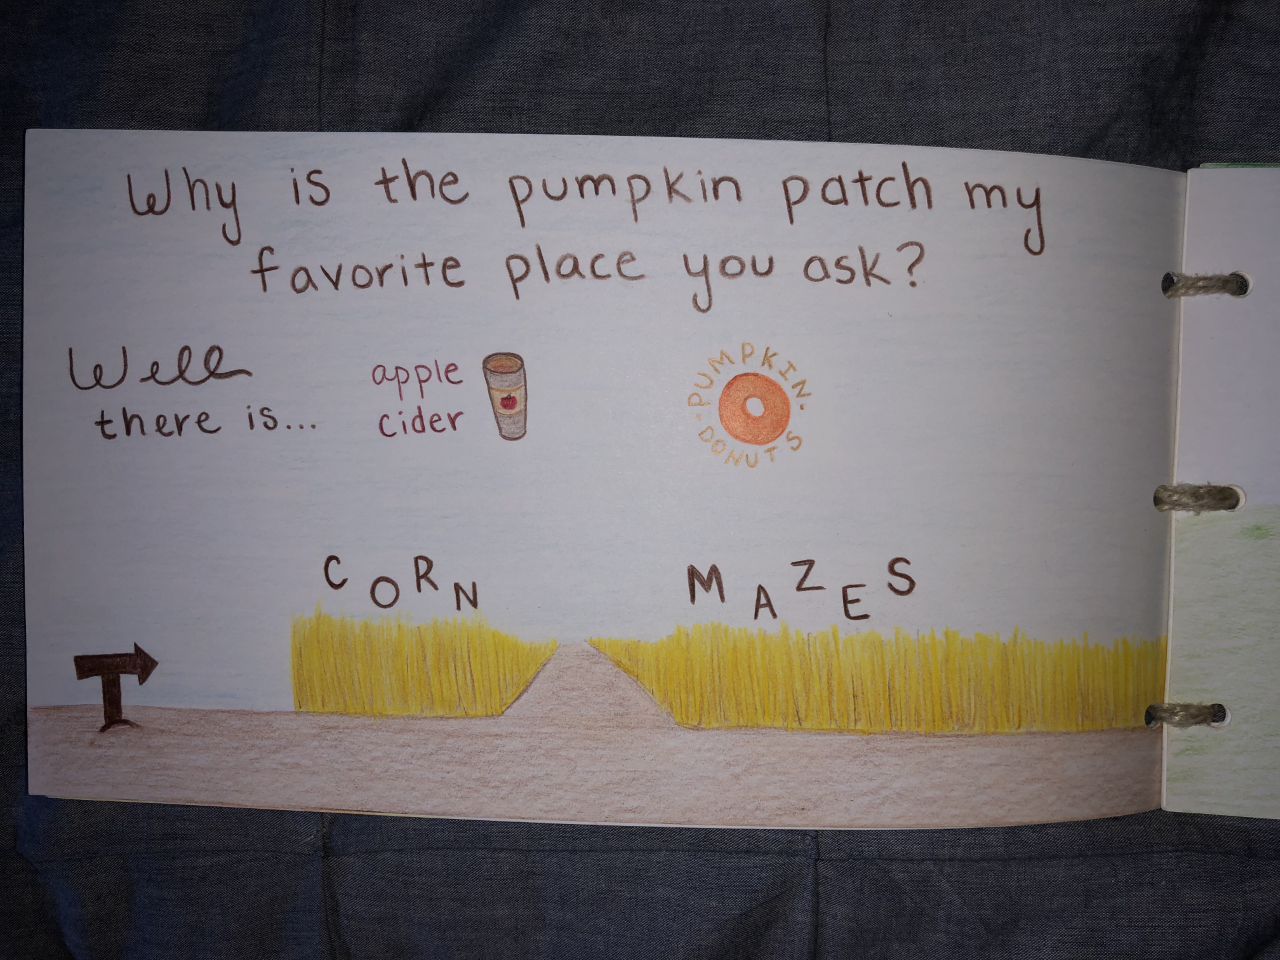 Why is the pumpkin patch my
favorite place you ask?
Well
there is...
apple
cider
PUMPKIN
DONUTS
CORN MAZES